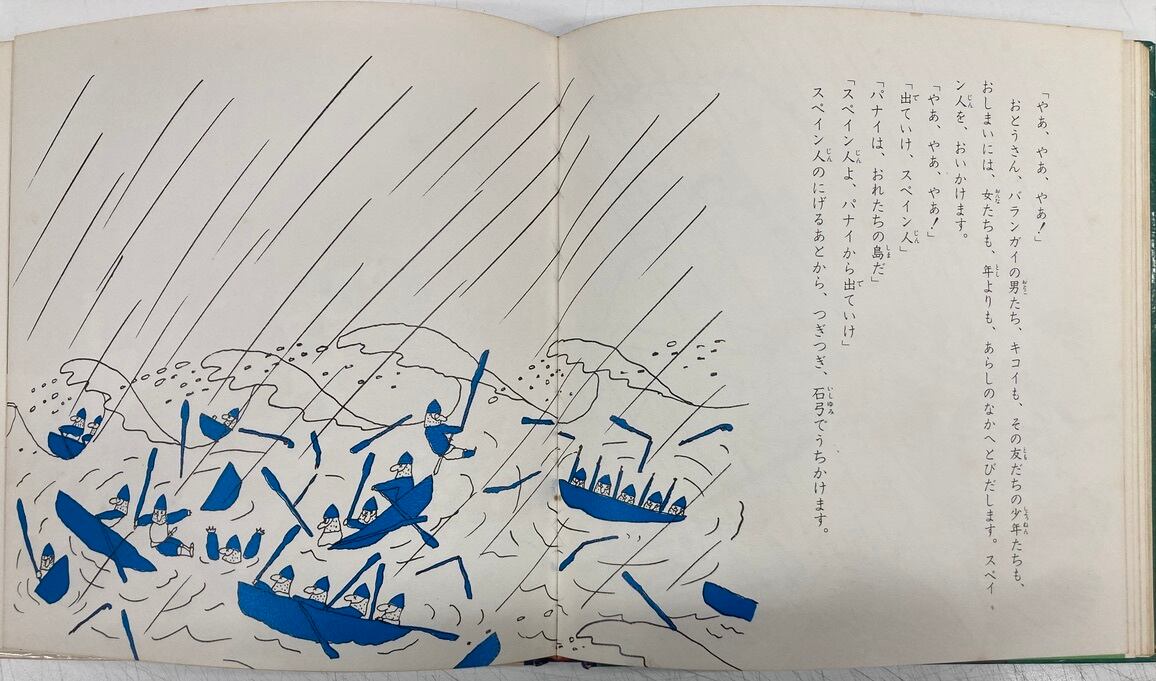 「やあ、やあ、やあ！」
おとうさん、バランガイの男たち、キコイも、その友だちの少年たちも、
おしまいには、女たちも、年よりも、あらしのなかへとびだします。スペイ
ン人を、おいかけます。
「やあ、やあ、やあ！」
「出ていけ、スペイン人」
「パナイは、おれたちの島だ」
「スペイン人よ、パナイから出ていけ」
スペイン人のにげるあとから、つぎつぎ、石弓でうちかけます。